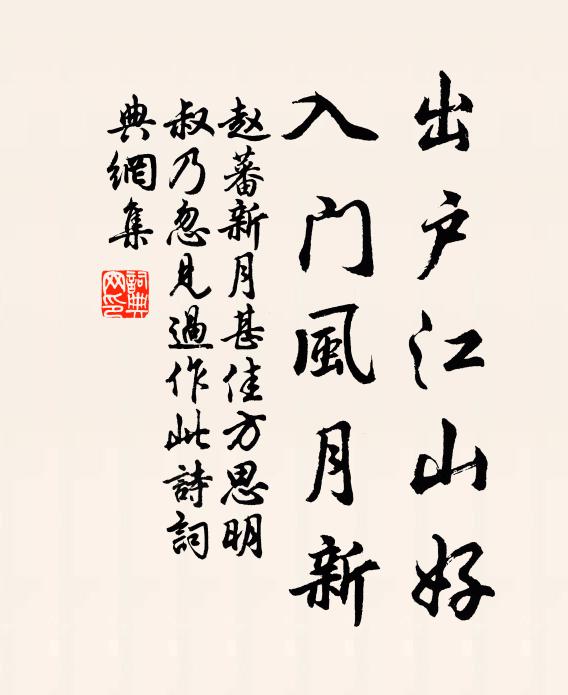 出户江山好
入门風月新
赵蕃新月甚佳方思明
叔乃忽見過作此詩詞
典網集
詞典網印